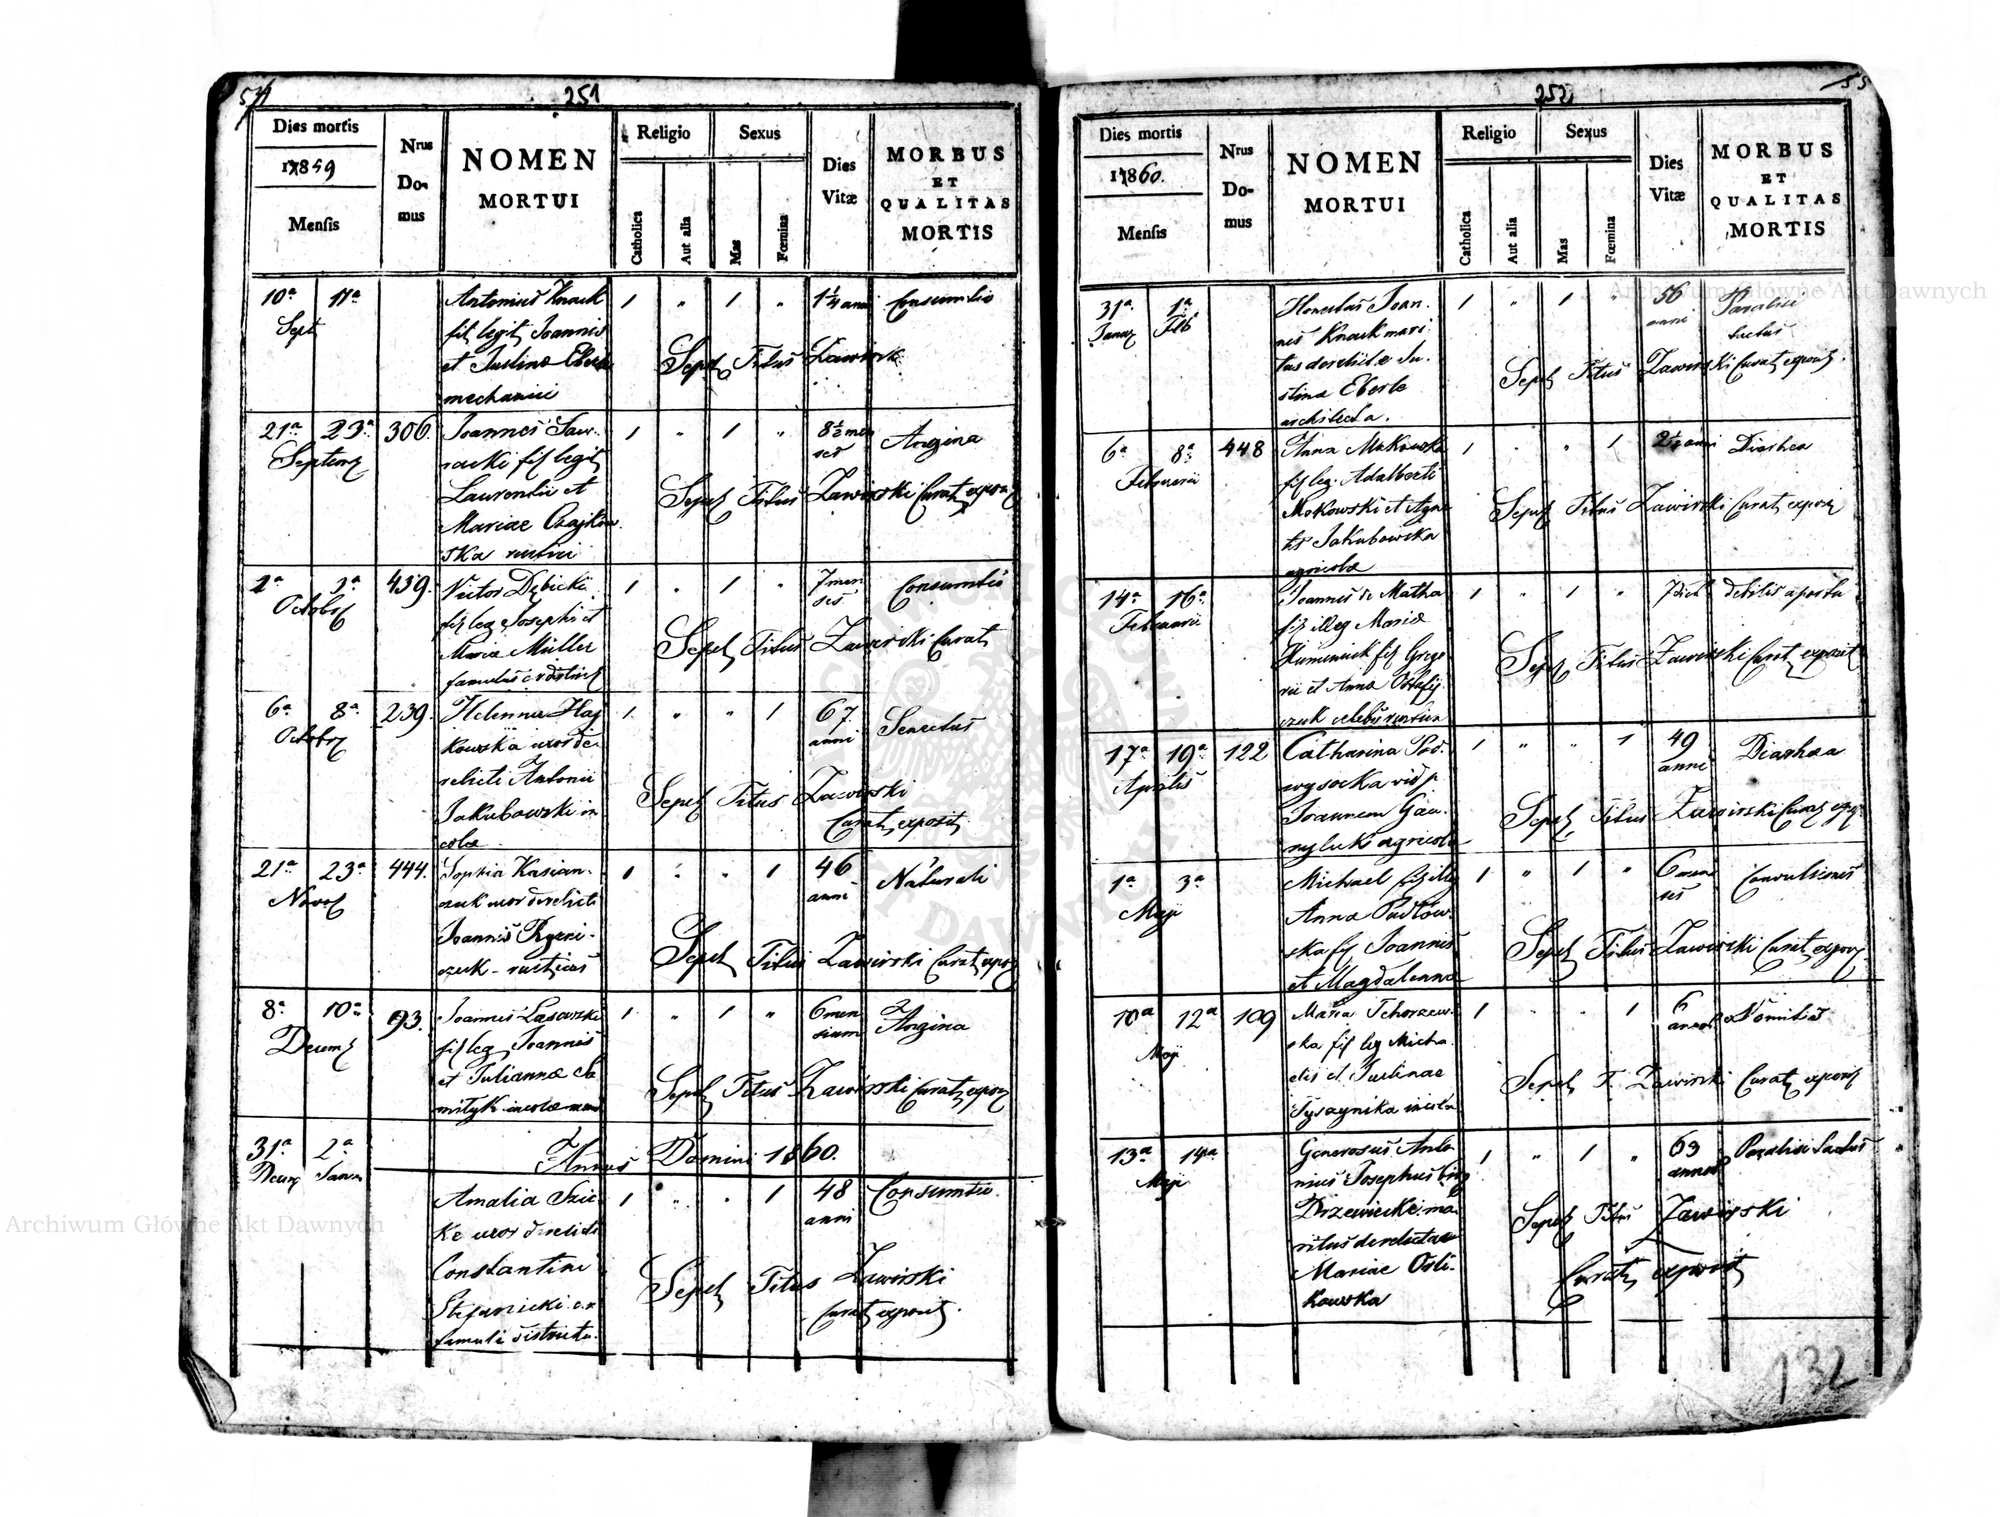 54
251
Dies mortis
1859
Mensis
Nrus
Do-
mus
NOMEN
MORTUI
Religio
Catholica
Aut alia
Sexus
Mas
Fœmina
Dies
Vitæ
MORBUS
ET
QUALITAS
MORTIS
10a 11a
Sept
Antonius Knauk
fil legit Joannis
et Justina Eberle
mechanici
1 " 1 "
1 1/4 anni
Consumtio
Sepel Titus Zawirski
21a 23a
Septemb
306.
Joannes Saw-
racki fil legit
Laurentii et
Mariae Czajkow
ska rustici
1 " 1 "
8 1/2 men
ses
Angina
Sepel Titus Zawirski Curat expos
2a 3a
Octobr
439.
Victor Dębicki
fil leg Josephi et
Maria Müller
1 " 1 "
7 men
ses
Consumtio
Sepel Titus Zawirski Curat
6a 8a
Octobr
239.
Helenna Haj
kowska uxor de
relicti Antonii
Jakubowski in
colae
1 " " 1
67
anni
Senectus
Sepel Titus Zawirski
Curat exposit
21a 23a
Novb
444.
Sophia Kasian-
czuk uxor derelicti
Joannis
czuk - rusticus
1 " " 1
46
anni
Naturali
Sepel Titus Zawirski Curat expos
8a 10a
Decemb
93.
Joannes Lasowski
fil leg Joannis
et Julianna Sa
1 " 1 "
6 men
sium
Angina
Sepel Titus Zawirski Curat expos
31a 2a
Decem Januar
Annus Domini 1860.
Amalia Szie
ke uxor derelicti
Constantini
Stefanicki c.r.
famuli districtu.
1 " " 1
48
anni
Consumtio.
Sepel Titus Zawirski
Curat exposit.
55
252
Dies mortis
1860.
Mensis
Nrus
Do-
mus
NOMEN
MORTUI
Religio
Catholica
Aut alia
Sexus
Mas
Fœmina
Dies
Vitæ
MORBUS
ET
QUALITAS
MORTIS
31a 1a
Januar Feb
Honestus Joan-
nes Knauk mari-
tus derelictæ Ju-
stina Eberle
architecta.
1 " 1 "
56
anni
Paralisi
tactus
Sepel Titus Zawirski Curat exposit.
6a 8a
Februarii
448
Anna Makowska
fil leg. Adalberti
Makowski et Agne
tis Jakubowska
agricolæ
1 " " 1
2 1/4 anni
Diarhea
Sepel Titus Zawirski Curat exposit
14a 16a
Februarii
Joannes de Matha
fil illeg Mariæ
fil Grego
rii et Anna
1 " 1 "
7 dies
debilis a partu
Sepel Titus Zawirski Curat exposit
17a 19a
Aprilis
122
Catharina Pod-
wysocka vid p.
Joannem Gaw-
ryluk agricola
1 " " 1
49
anni
Diarhea
Sepel Titus Zawirski Curat exp.
1a 3a
Maji
Michael fil illeg
Anna Pawlow-
ska fil Joannis
et Magdalenna
1 " 1 "
6 men
ses
Convulsiones
Sepel Titus Zawirski Curat expos
10a 12a
Maji
109
Maria Tchorzew-
ska fil leg Micha
elis et Justinae
Tysaynika incola
1 " " 1
6
annos
Vomitus
Sepel T. Zawirski Curat exposit
13a 14a
Maji
Generosus Anto
nius Josephus
Drzewiecki ma-
ritus derelictae
Mariae Orli-
kowska
1 " 1 "
63
annos
Paralisi tactus
Sepel Titus Zawirski
Curat exposit
132
Archiwum Główne Akt Dawnych
Archiwum Główne Akt Dawnych